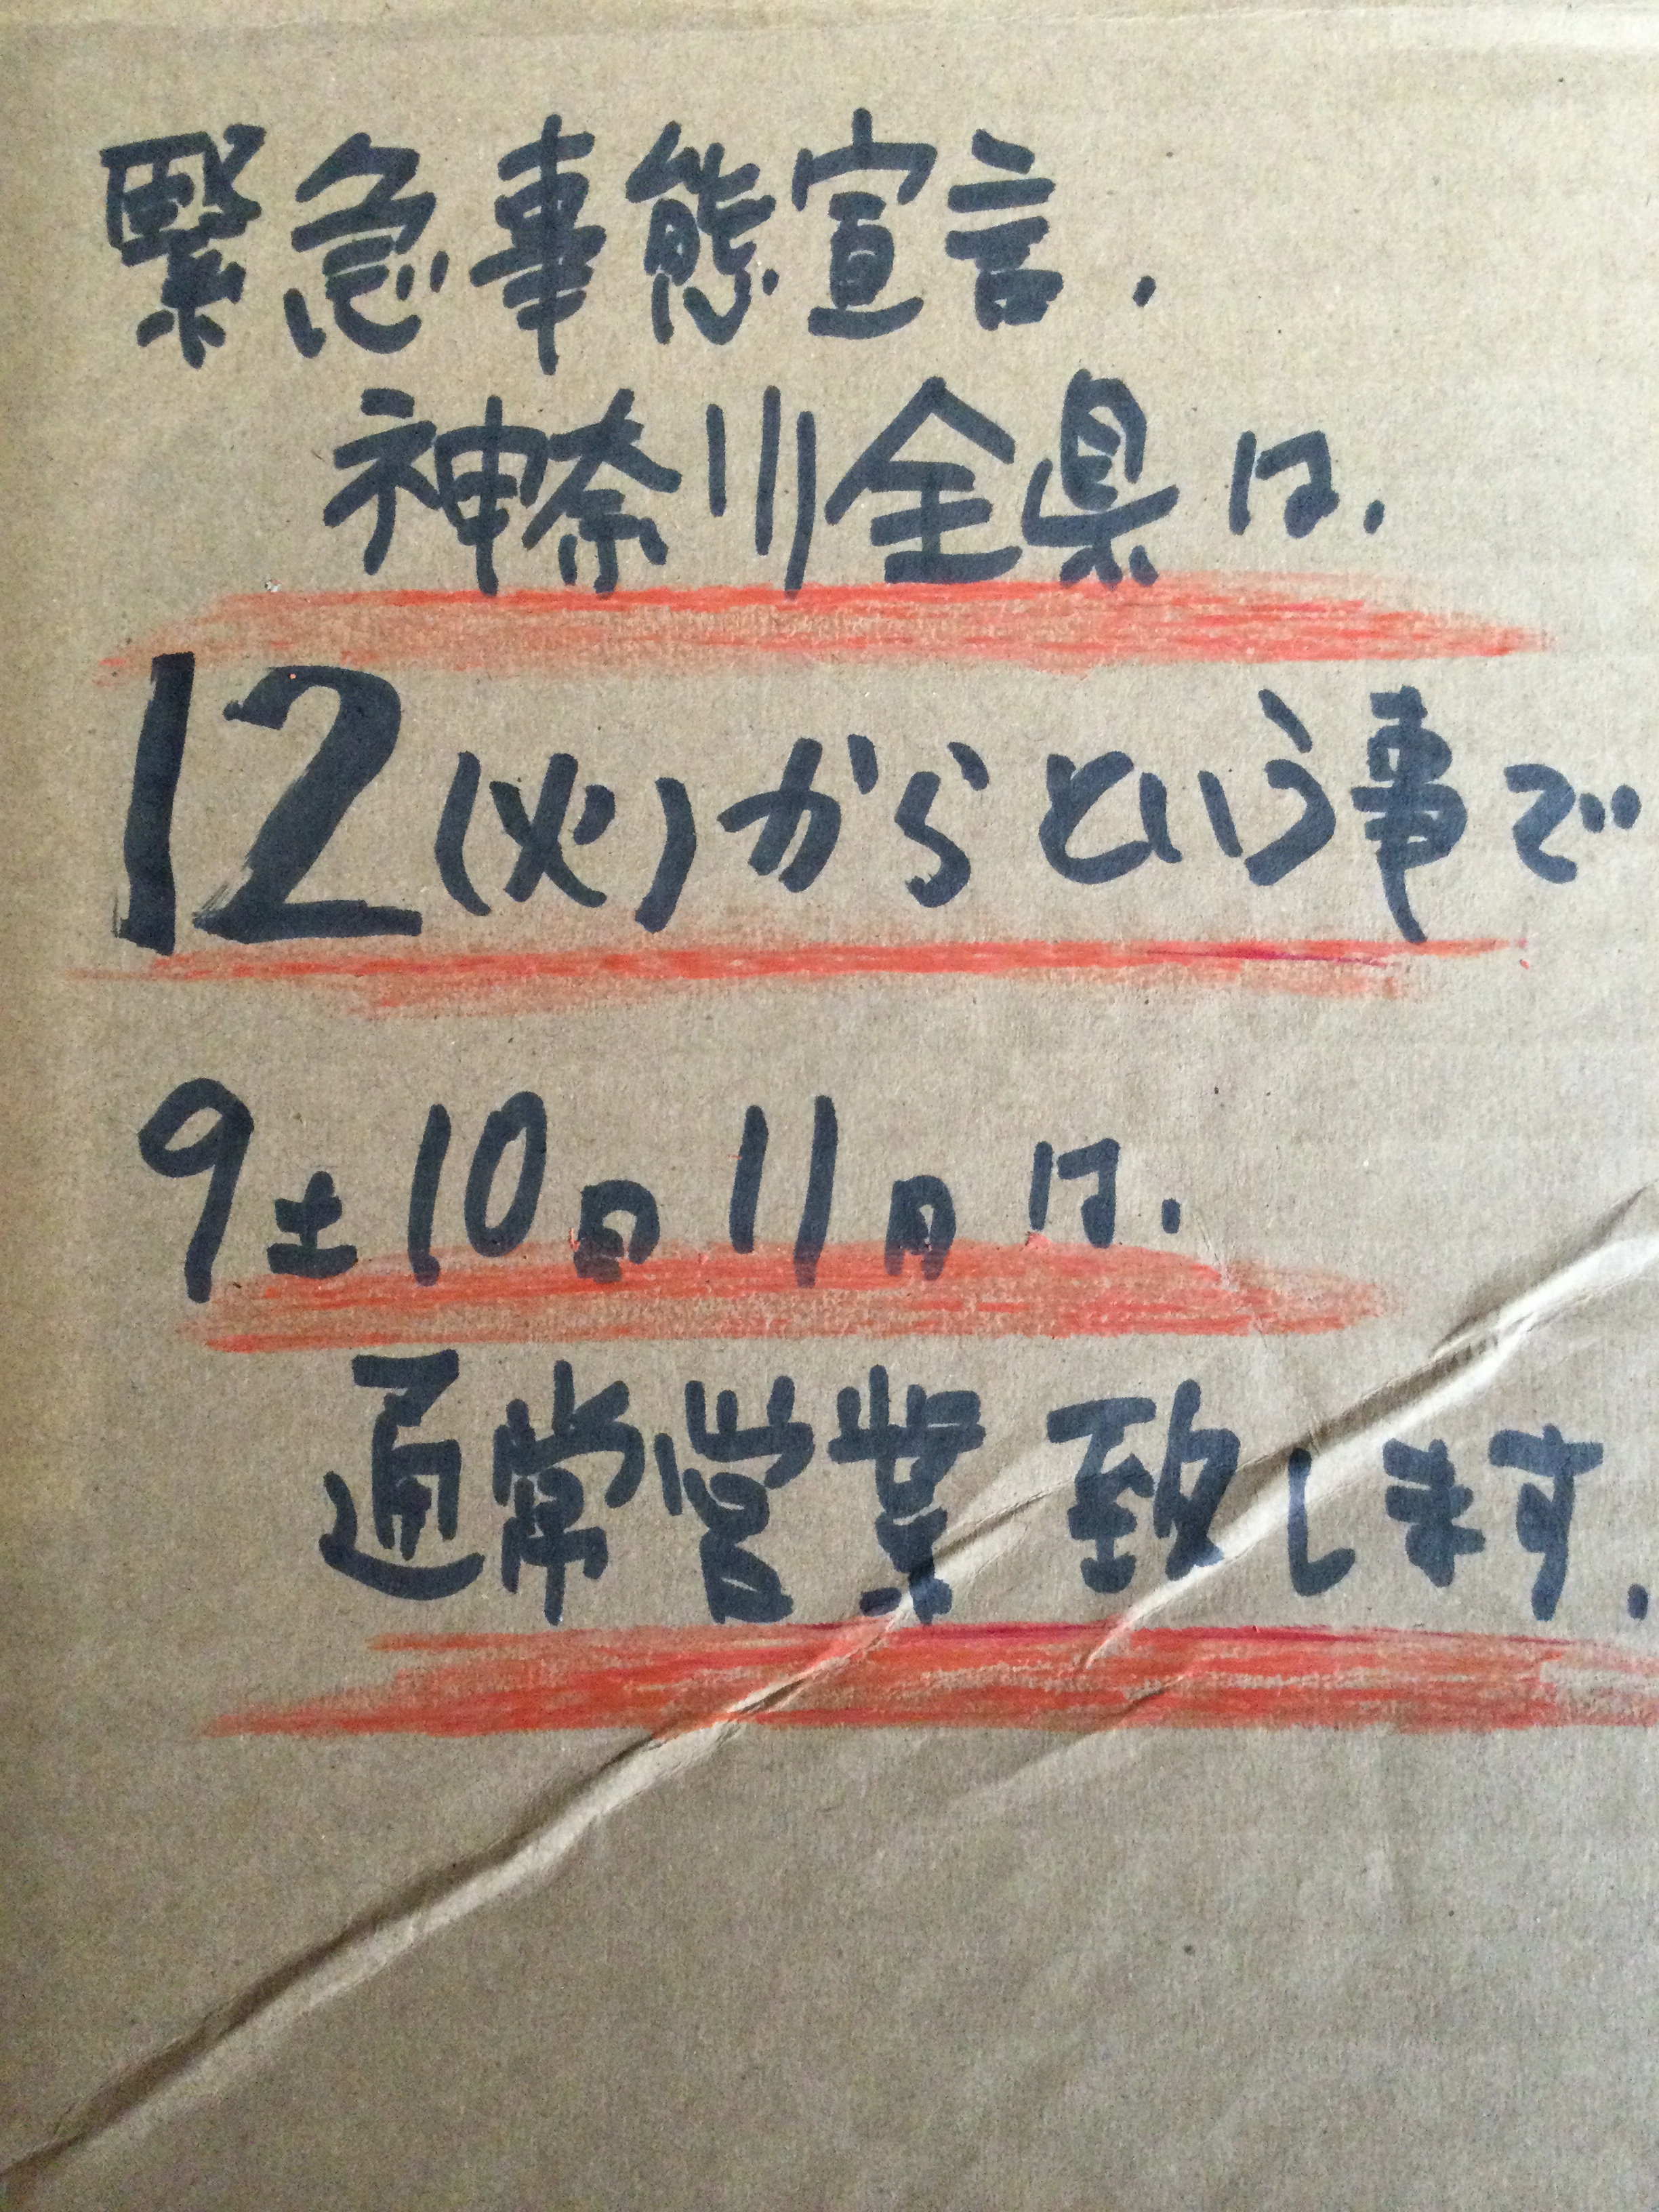 緊急事態宣言、
神奈川全県は、
12(火)からという事で
9土10日11月は、
通常営業致します、